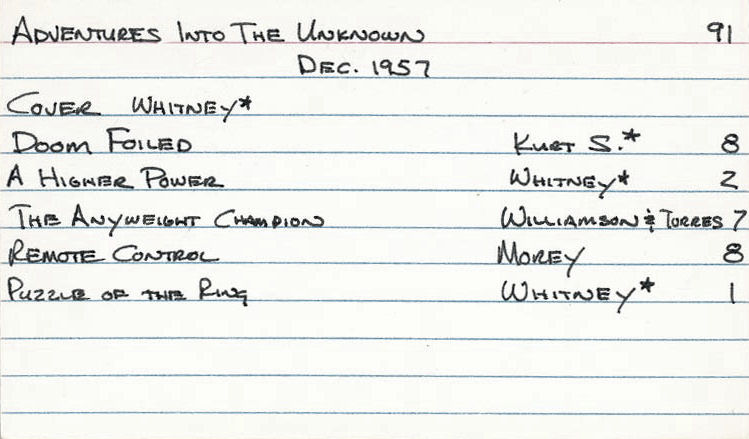 ADVENTURES INTO THE UNKNOWN 91
DEC. 1957
COVER WHITNEY*
DOOM FOILED KURT S.* 8
A HIGHER POWER WHITNEY* 2
THE ANYWEIGHT CHAMPION WILLIAMSON & TORRES 7
REMOTE CONTROL MOREY 8
PUZZLE OF THE RING WHITNEY* 1